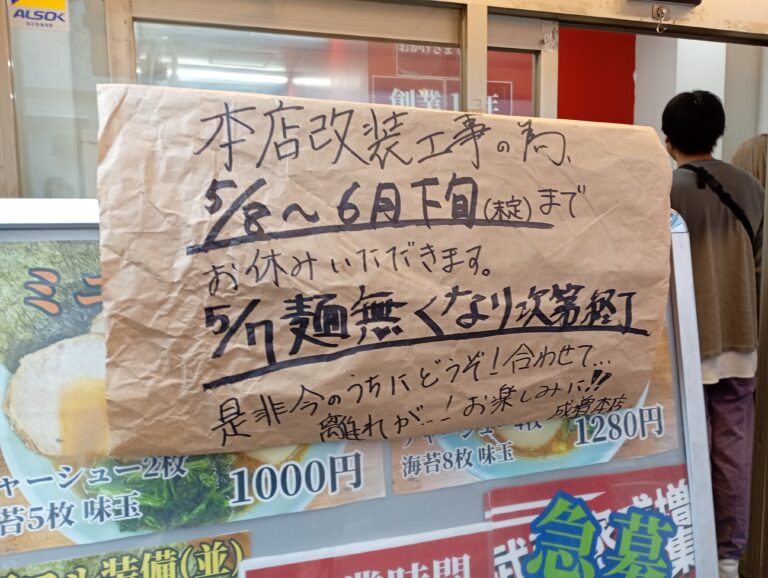 ALSOK
おかげさま
創業1
年
本店改装工事の為、
5/8〜6月下旬(未定)まで
お休みいただきます。
5/7麺無くなり次第終了
是非今のうちにどうぞ!合わせて…
離れが…!お楽しみに!!
成増本店
ミニ
ャーシュー2枚
苔5枚 味玉
1000円
チャーシュー4枚
海苔8枚 味玉
1280円
装備(並)
業時間
武
家成増
急募
集